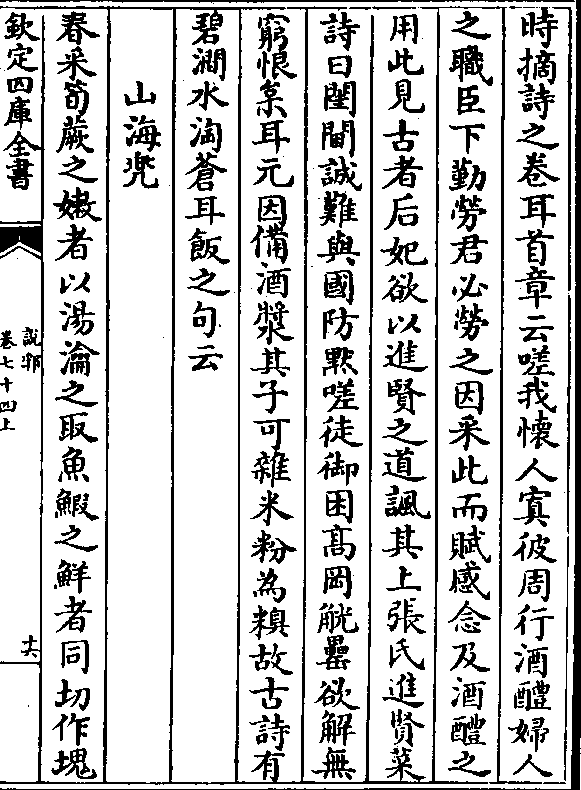 時摘詩之卷耳首章云嗟我懷人寘彼周行酒醴婦人
之職臣下勤勞君必勞之因采此而賦感念及酒醴之
用此見古者后妃欲以進賢之道諷其上張氏進賢菜
詩曰閨閫誠難與國防黙嗟徒御困髙岡觥罍欲解無
窮恨枲耳元因備酒漿其子可雜米粉為糗故古詩有
碧澗水淘蒼耳飯之句云
山海兜
春采筍蕨之嫩者以湯瀹之取魚鰕之鮮者同切作塊
欽定四庫全書
說郛
卷七十四上
十六